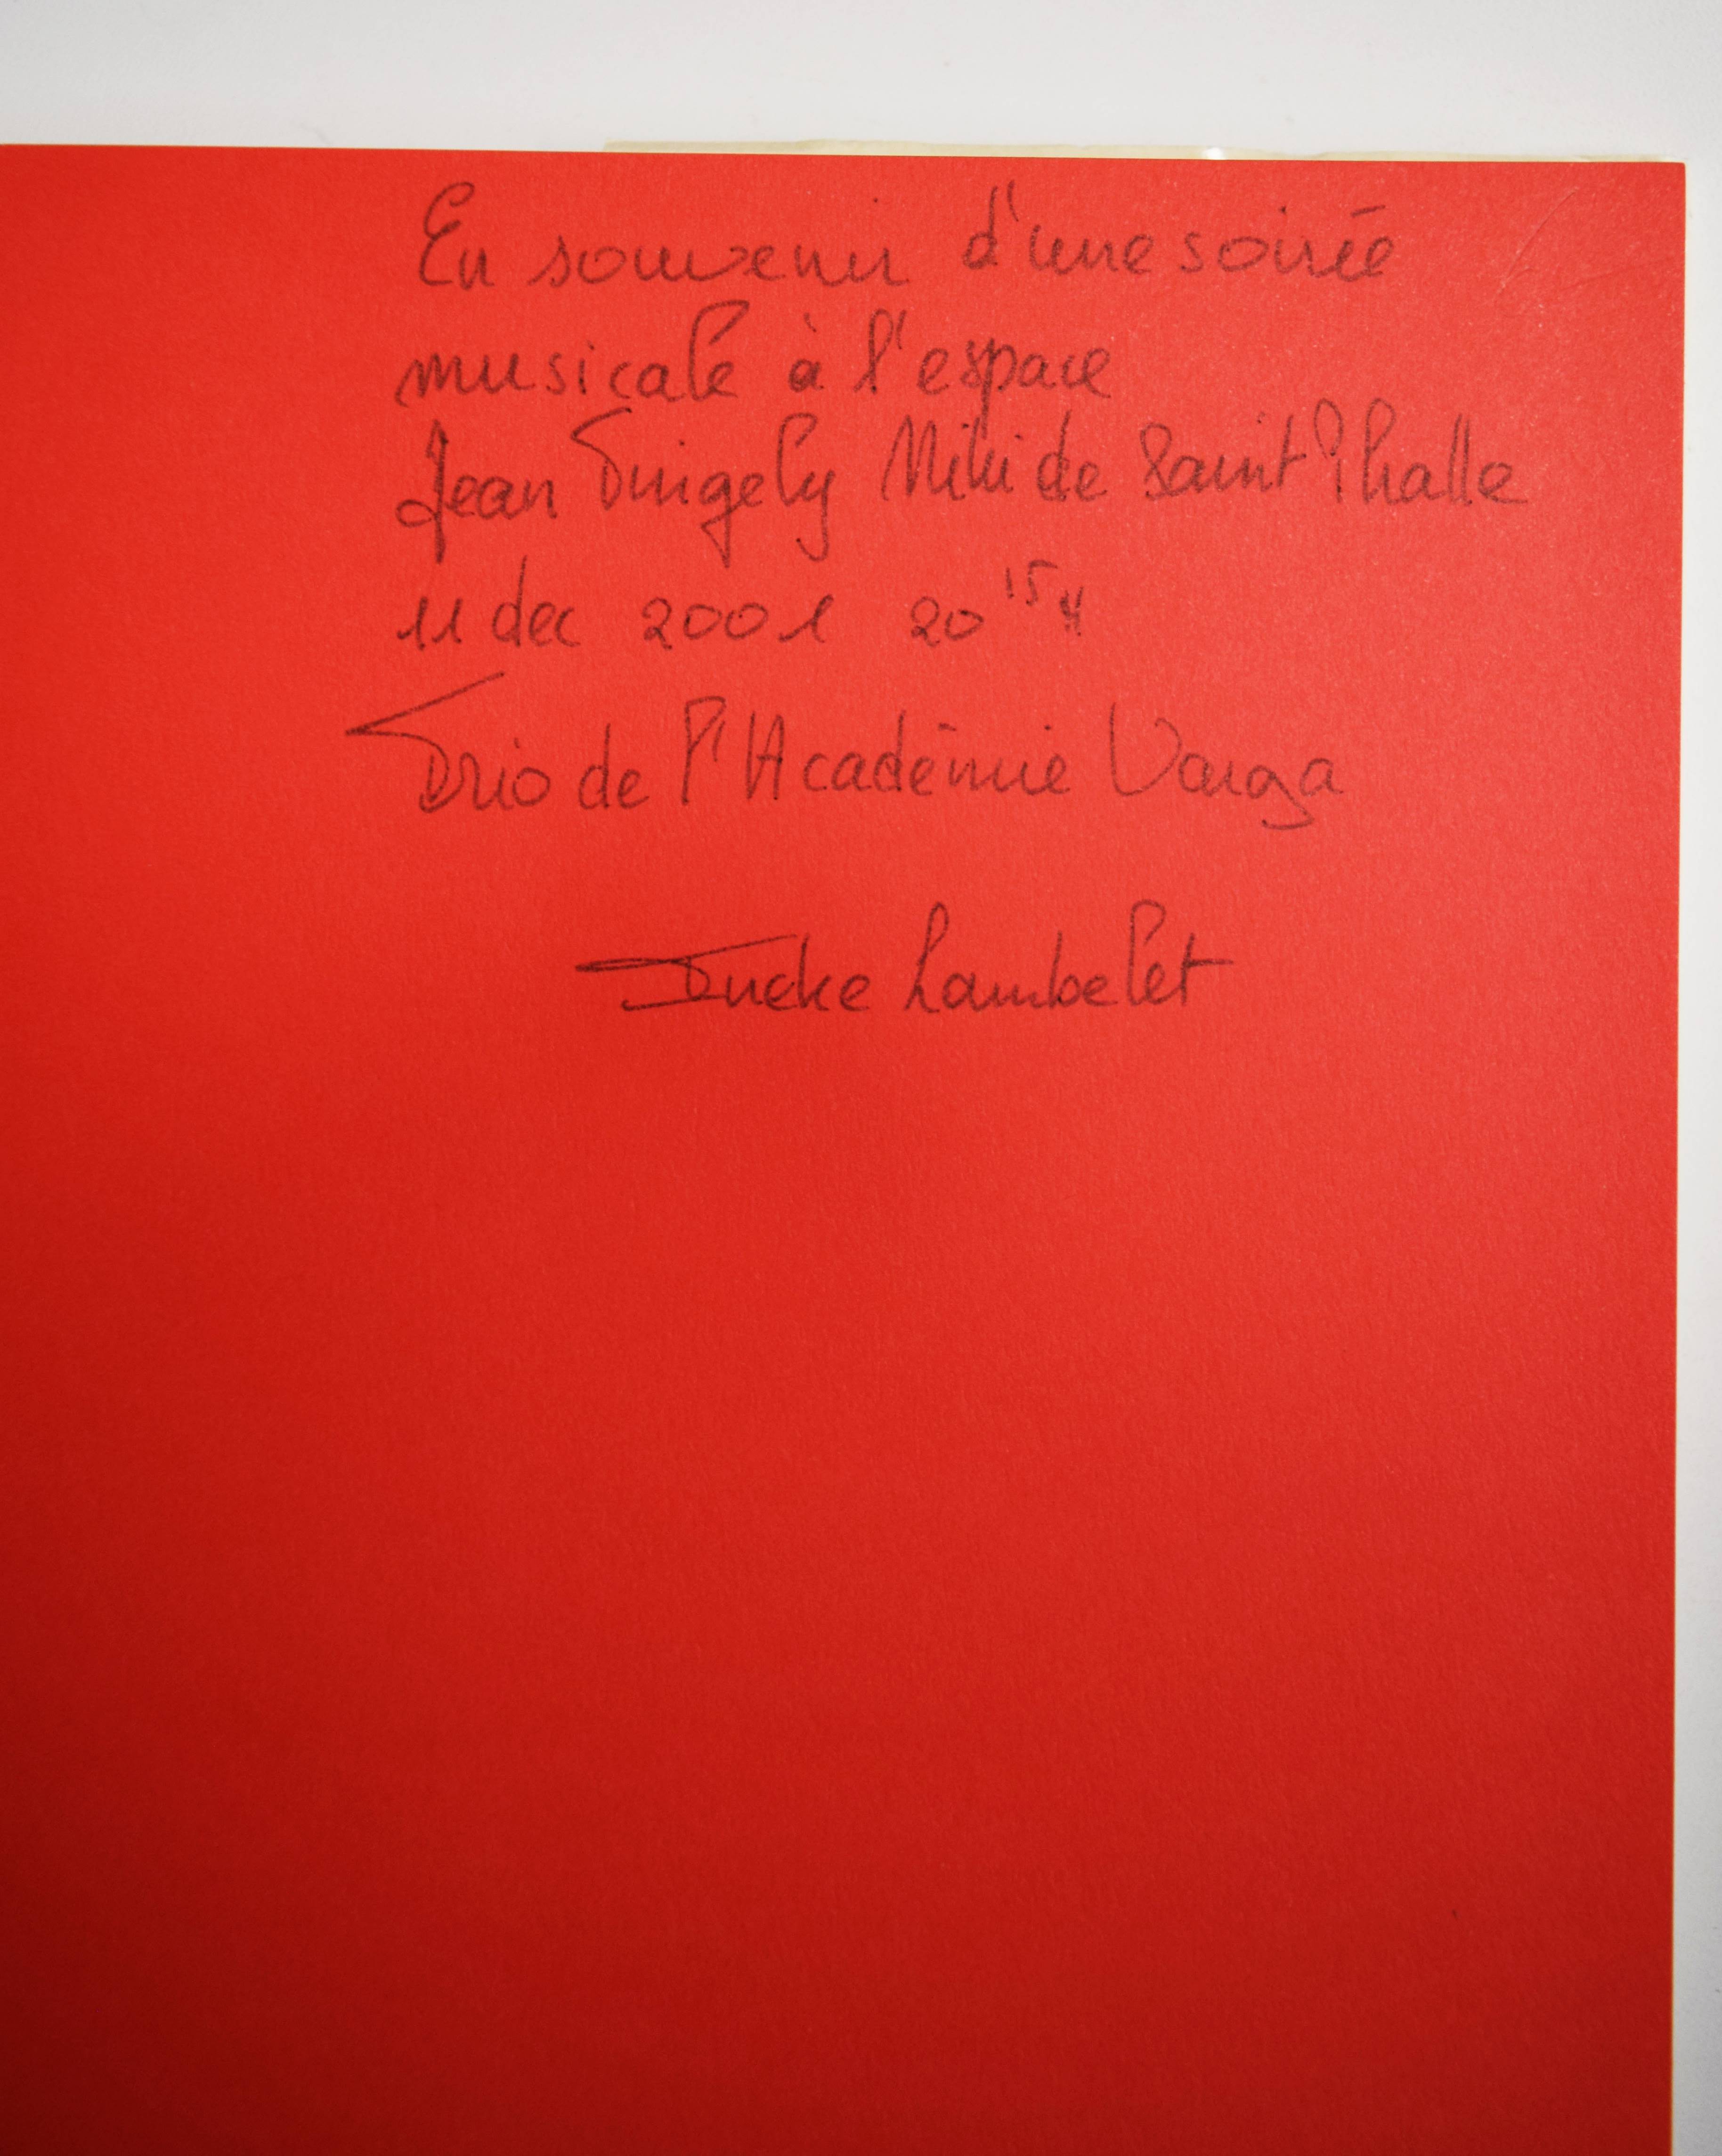 En souvenir d'une soirée
musicale à l'espace
Jean Tinguely Niki de Saint Phalle
11 dec 2001 20 15 H
Trio de l'Académie Varga
Lambelet